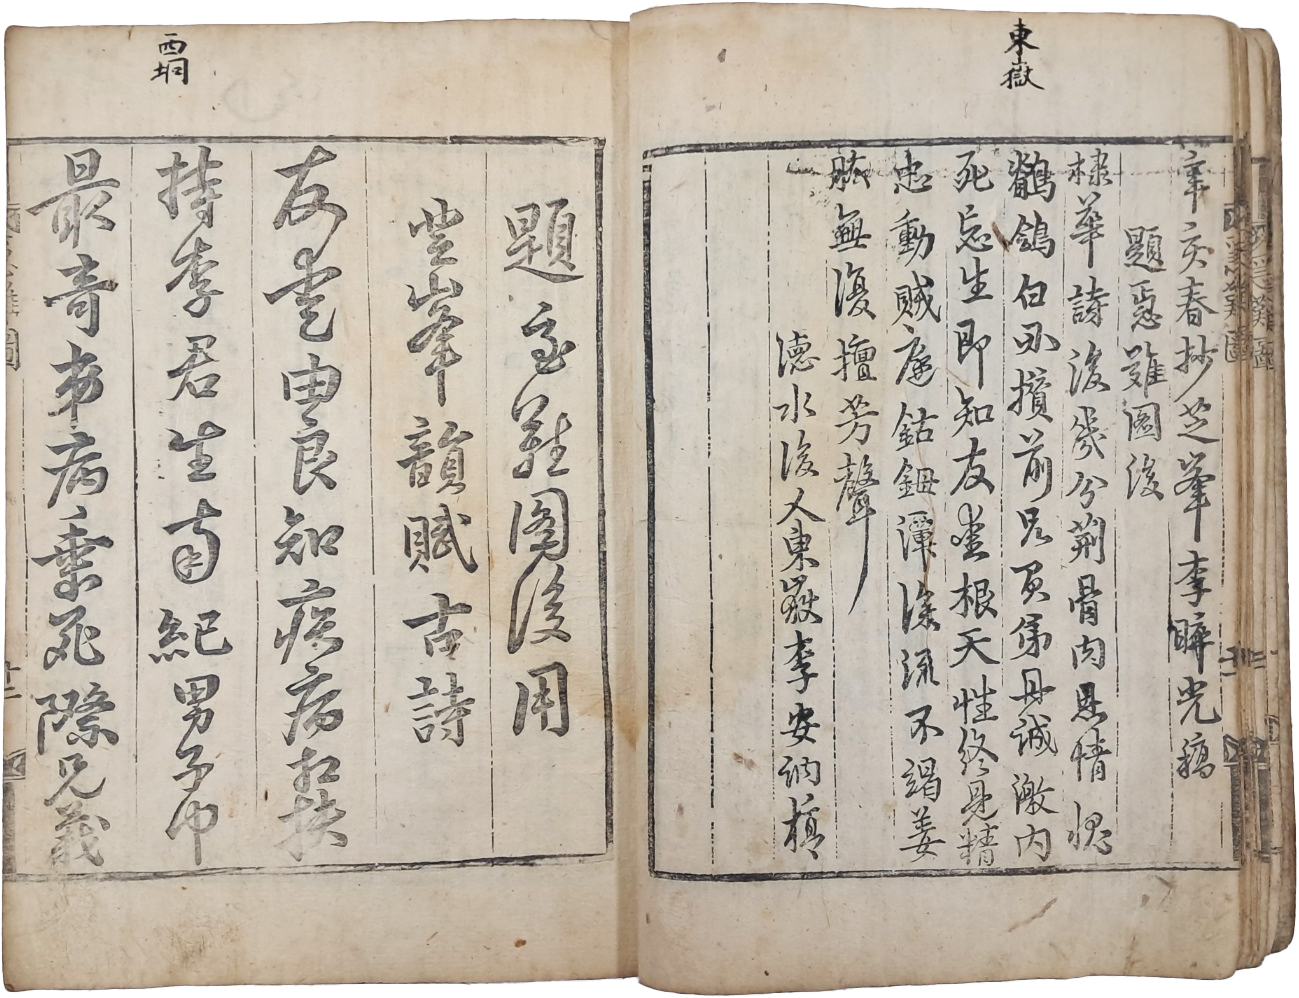 東嶽
辛亥春抄芝峯李睟光稿
題急難圖後
棣華詩後幾分荊骨肉恩情
鶺鴒白刃攅前兄負弟丹誠激內
死忘生即知友愛根天性終見精
忠動賊庭鈷鉧潭深流不竭姜
肱無復擅芳聲
德水後人東嶽李安訥稿
西坰
題急難圖後用
芝峯韻賦古詩
友愛由良知疾病相扶
持李君生南紀男子中
最奇弟病垂死際兄義